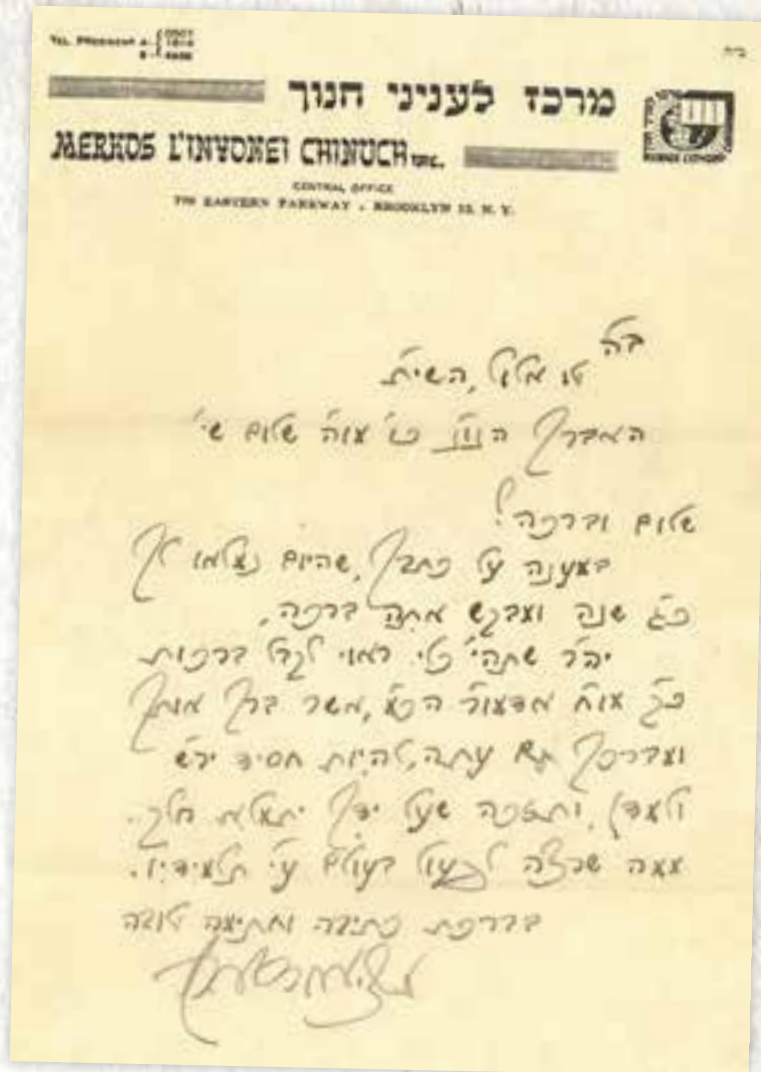 ב״ה
מרכז לעניני חנוך
MERKOS L'INYONEI CHINUCH INC.
CENTRAL OFFICE
770 EASTERN PARKWAY . BROOKLYN 13, N. Y.
ב״ה
טו אלול, השי״ת
האברך מו׳ שלום שי׳
שלום וברכה!
במענה על כתבך, שהיום נמלאו לך
כ״ג שנה ומבקש אתה ברכה,
יה״ר שתהי׳ כלי ראוי לקבל ברכות
כ״ק מו״ח אדמו״ר הכ״מ, אשר ברך אותך
ומברכך גם עתה, להיות חסיד יר״ש
ולמדן, ותזכה שעל ידך יתמלא חלק
ממה שרצה לפעול בעולם ע״י תלמידיו.
בברכת כתיבה וחתימה טובה